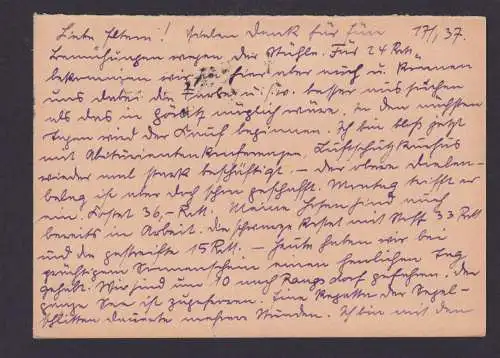 Liebe Eltern! Vielen Dank für Eure 17/1. 37.
Bemühungen wegen der Stühle. Für 24 RM.
bekommen wir sie hier aber auch u. können
uns dabei die Farbe u.s.w. besser aussuchen
als das in Görlitz möglich wäre. In den nächsten
Tagen wird der Kauf beginnen. Ich bin bloß jetzt
mit Abiturientenkonferenzen, Luftschutzkursus
wieder mal stark beschäftigt. – Der obere Dielen-
belag ist aber doch schon geschafft. Montag trifft er
ein. Kostet 36,– RM. Meine Hosen sind auch
bereits in Arbeit. Die schwarze kostet mit Stoff 33 RM
und die gestreifte 15 RM. – Heute hatten wir bei
prächtigem Sonnenschein einen herrlichen Tag
gehabt. Wir sind um 10 nach Rangsdorf gefahren. Der
ganze See ist zugefroren. Eine Regatta der Segel-
schlitten dauerte mehrere Stunden. Ich bin mit den